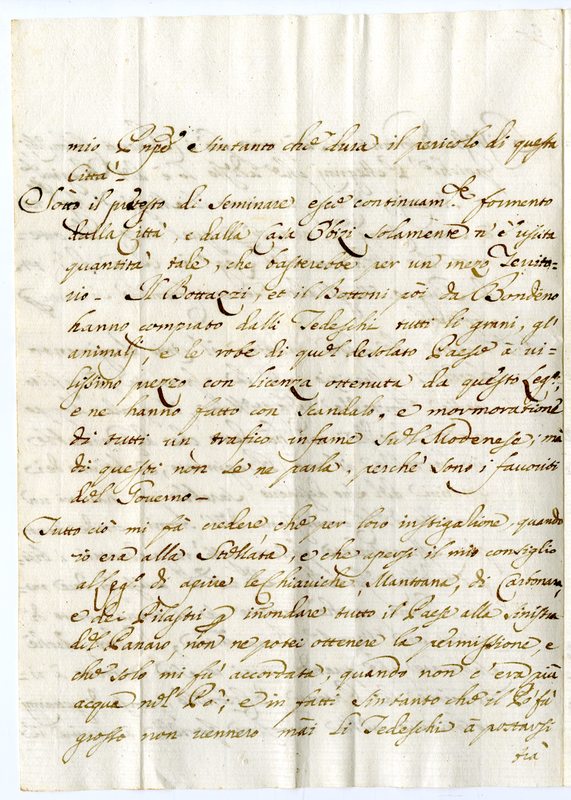 mio Pnpe. sin tanto che dura il pericolo di questa
Città.
Sotto il pretesto di seminare esce continuam.te formento
dalla Città, e dalla Casa Obizi solamente n'è uscita
quantità tale, che basterebbe per un mezo Territo=
rio. Il Bottazzi, et il Bottoni poi da Bondeno
hanno comprato dalli Tedeschi tutti li grani, gl'
animali, e le robe di quel desolato Paese à vi=
lissimo prezzo con licenza ottenuta da questo Leg.o,
e ne hanno fatto con scandalo, e mormoratione
di tutti un trafico infame sul Modenese; mà
di questi non se ne parla, perche sono i favoriti
del Governo.
Tutto ciò mi fà credere, che per loro instigatione, quando
io era alla Stellata, e che apersi il mio consiglio
al Leg.o di aprire le Chiaviche Mantoana, di Carbonara,
e dei Pilastri p inondare tutto il Paese alla sinistra
del Panaro, non ne potei ottenere la permissione, e
che solo mi fù accordata, quando non c'era più
acqua nel Pò; e in fatti sin tanto che il Pò fù
grosso non vennero mai li Tedeschi à postarsi
trà